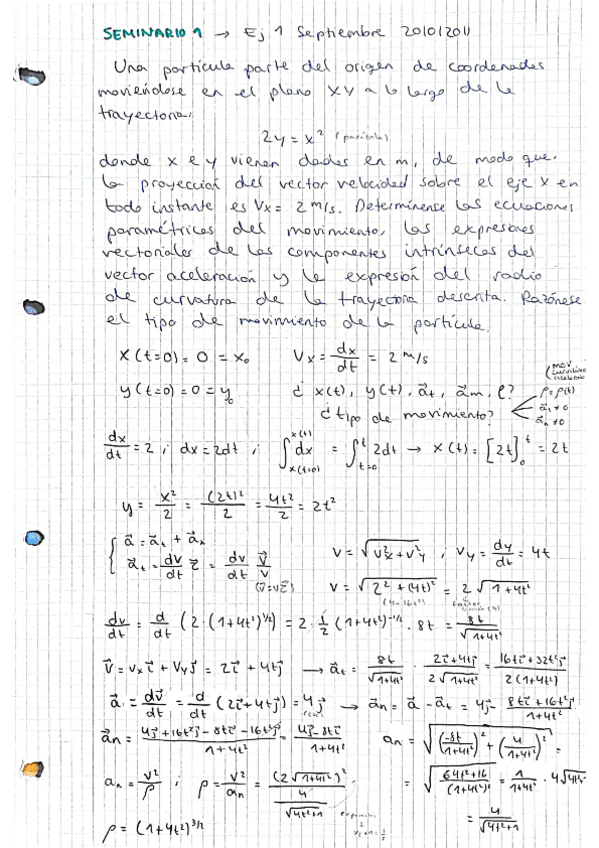 SEMINARIO 1 → Ej 1 Septiembre 2010/2011
Una partícula parte del origen de coordenadas
moviéndose en el plano XY a lo largo de la
trayectoria:
2y = x² (parábola)
donde x e y vienen dados en m, de modo que
la proyección del vector velocidad sobre el eje x en
todo instante es Vx = 2 m/s. Determínense las ecuaciones
paramétricas del movimiento, las expresiones
vectoriales de las componentes intrínsecas del
vector aceleración y la expresión del radio
de curvatura de la trayectoria descrita. Razónese
el tipo de movimiento de la partícula.
x(t=0) = 0 = x₀   Vx = dx/dt = 2 m/s   (mov curvilíneo acelerado
y(t=0) = 0 = y₀   ¿ x(t), y(t), a⃗t, a⃗n, ρ?   ρ = ρ(t)
¿tipo de movimiento?   a⃗t ≠ 0
a⃗n ≠ 0
dx/dt = 2 ; dx = 2dt ; ∫_{x(t=0)}^{x(t)} dx = ∫_{t=0}^{t} 2dt → x(t) = [2t]₀ᵗ = 2t
y = x²/2 = (2t)²/2 = 4t²/2 = 2t²
a⃗ = a⃗t + a⃗n   v = √(v²x + v²y) , vy = dy/dt = 4t
a⃗t = dv/dt τ⃗ = dv/dt v⃗/v   v = √(2² + (4t)²) = 2√(1+4t²)
(v⃗ = vτ⃗)   (4+16t²)
dv/dt = d/dt (2·(1+4t²)^(1/2)) = 2·1/2 (1+4t²)^(-1/2) · 8t = 8t/√(1+4t²)
v⃗ = vx i⃗ + vy j⃗ = 2i⃗ + 4tj⃗ → a⃗t = 8t/√(1+4t²) · (2i⃗+4tj⃗)/(2√(1+4t²)) = (16ti⃗+32t²j⃗)/(2(1+4t²))
a⃗ = dv⃗/dt = d/dt (2i⃗+4tj⃗) = 4j⃗ → a⃗n = a⃗ - a⃗t = 4j⃗ - (8ti⃗+16t²j⃗)/(1+4t²)
a⃗n = (4j⃗+16t²j⃗-8ti⃗-16t²j⃗)/(1+4t²) = (4j⃗-8ti⃗)/(1+4t²)   an = √((-8t/(1+4t²))² + (4/(1+4t²))²) =
an = v²/ρ ; ρ = v²/an = (2√(1+4t²))²/(4/√(4t²+1))   = √((64t²+16)/(1+4t²)²) = 1/(1+4t²) · 4√(4t²
= 4/√(4t²+1)
ρ = (1+4t²)^(3/2)